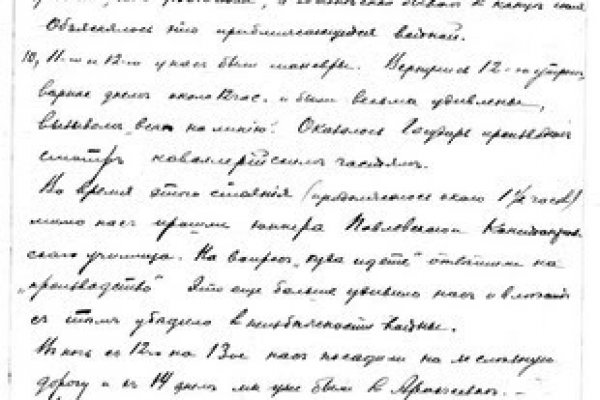 Объяснялось это приближающейся войной.
10, 11-го и 12-го у нас были маневры. Вернулись 12-го утром,
вернее днем около 12 час. и были весьма удивлены,
вызовом „всех на линию“. Оказалось Государь производит
смотр кавалерийским частям.
Во время этого стояния (продолжалось около 1½ часов)
мимо нас прошли юнкера Павловского Константиновского
училища. На вопрос „куда идете“ ответили на
„производство“ Это еще больше удивило нас и вместе
с тем убедило в неизбежности войны.
В ночь с 12го на 13ое нас посадили на железную
дорогу и в 14 днем мы уже были в